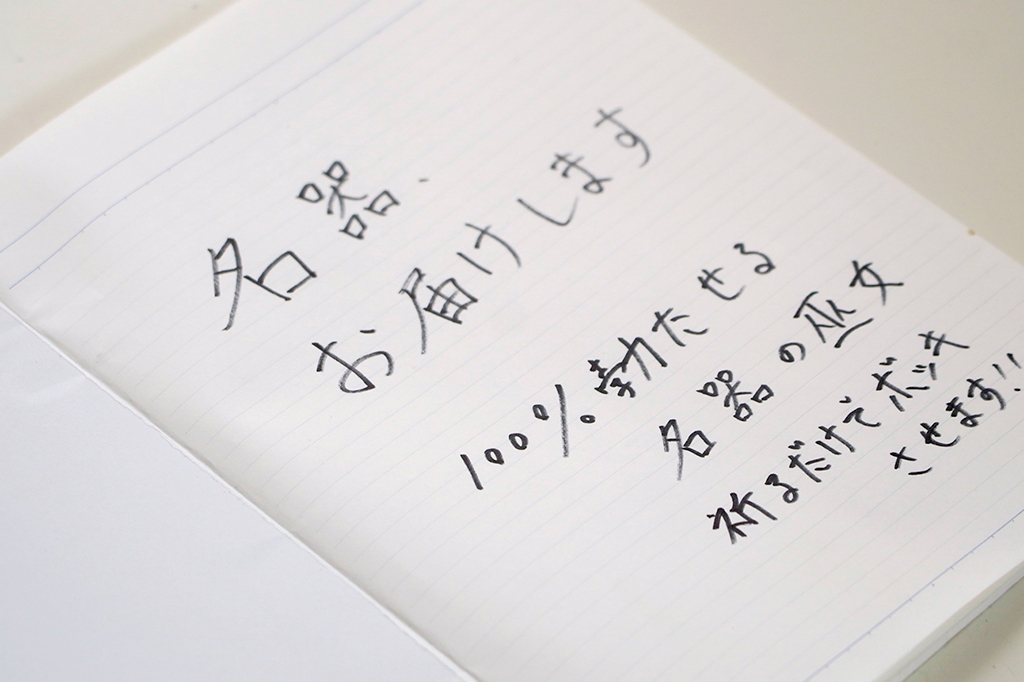 名器、
お届けします
100%勃たせる
名器の巫女
祈るだけでボッキ
させます!!